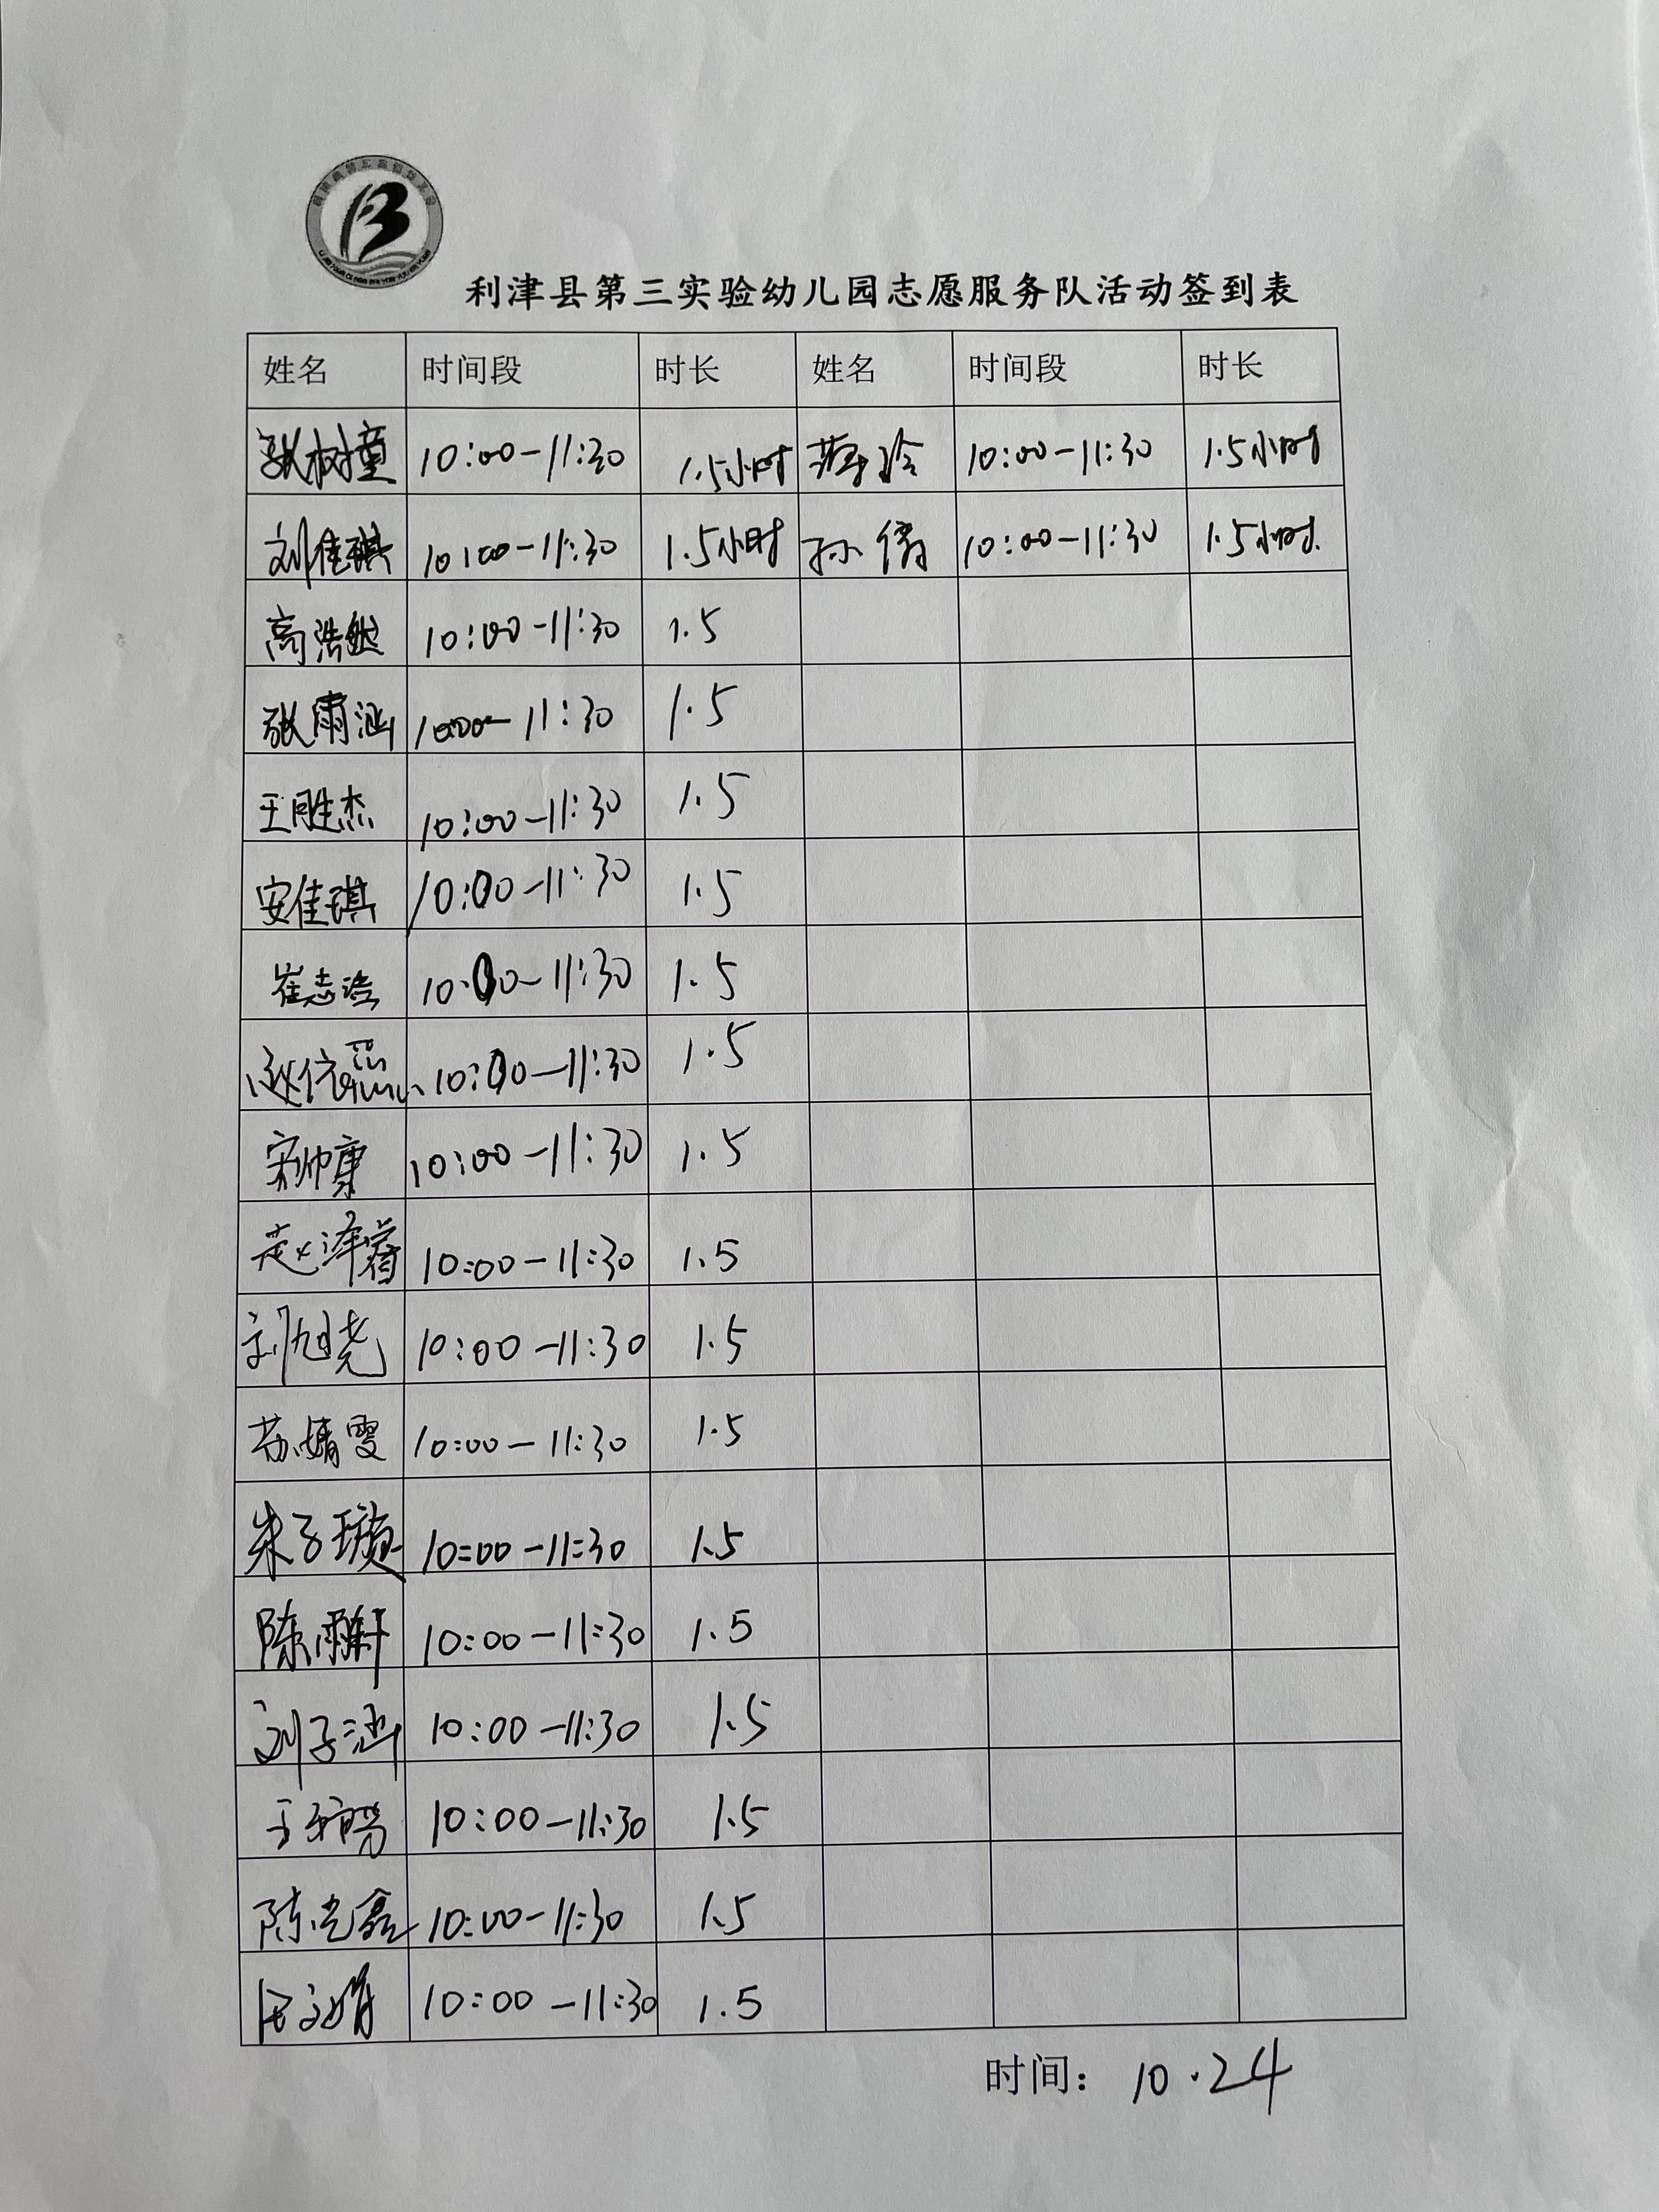 利津县第三实验幼儿园志愿服务队活动签到表
姓名 时间段 时长 姓名 时间段 时长
张树童 10:00-11:30 1.5小时 薄玲 10:00-11:30 1.5小时
刘佳琪 10:00-11:30 1.5小时 孙倩 10:00-11:30 1.5小时.
高浩然 10:00-11:30 1.5
张雨涵 10:00-11:30 1.5
王胜杰 10:00-11:30 1.5
安佳琪 10:00-11:30 1.5
崔志浩 10:00-11:30 1.5
10:00-11:30 1.5
宋帅康 10:00-11:30 1.5
赵泽睿 10:00-11:30 1.5
刘旭尧 10:00-11:30 1.5
苏婧雯 10:00-11:30 1.5
朱子璇 10:00-11:30 1.5
陈雨轩 10:00-11:30 1.5
刘子涵 10:00-11:30 1.5
10:00-11:30 1.5
陈光鑫 10:00-11:30 1.5
10:00-11:30 1.5
时间: 10.24